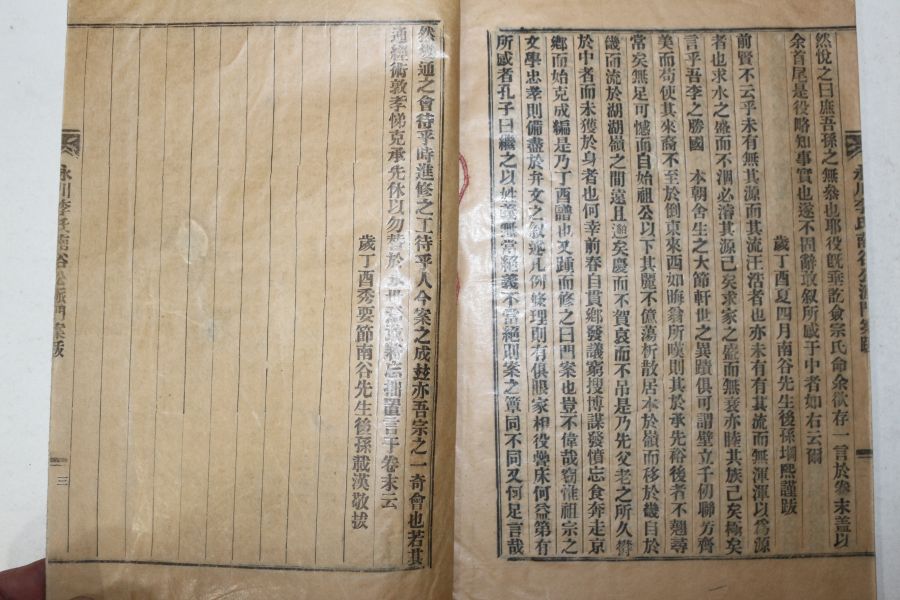 然悅之曰庶吾孫之無忝也耶役旣垂訖僉宗氏命余欲存一言於卷末盖以
余首尾是役略知事實也遂不固辭敢叙所感于中者如右云爾
歲丁酉夏四月南谷先生後孫堈熙謹跋
前賢不云乎未有無其源而其流汪浩者也亦未有有其流而無渾渾以爲源
者也求水之盛而不涸必濬其源己矣求家之盛而無衰亦睦其族己矣極矣
言乎吾李之勝國 本朝舍生之大節軒世之異蹟俱可謂壁立千仞聯芳齊
美而苟使其來裔不至於倒東來西如晦翁所嘆則其於承先裕後者不翹尋
常矣無足可憾而自始祖公以下其麗不億蕩析散居本於嶺而移於畿自於
畿而流於湖湖嶺之間遠且 矣慶而不賀哀而不吊是乃先父老之所久
於中者而未獲於身者也何幸前春自貫鄕發議窮搜博謀發憤忘食奔走京
鄕而始克成編是乃丁酉譜也又踵而修之曰門案也豈不偉哉竊惟祖宗之
文學忠孝則備盡於弁文之叙述凡例條理則有俱眼家相役 床何益第有
所感者孔子曰繼之以姓義無當絕義不當絕則案之簟同不同又何足言哉
然 通之會待乎時進修之工待乎人今案之成玆亦吾宗之一奇會也若其
通經術敦孝悌克承先休以勿替於 世 忘拙置言于卷末云
歲丁酉秀葽節南谷先生後孫載漢敬拔
永川李氏南谷公派門案跋
永川李氏南谷公派門案跋
三